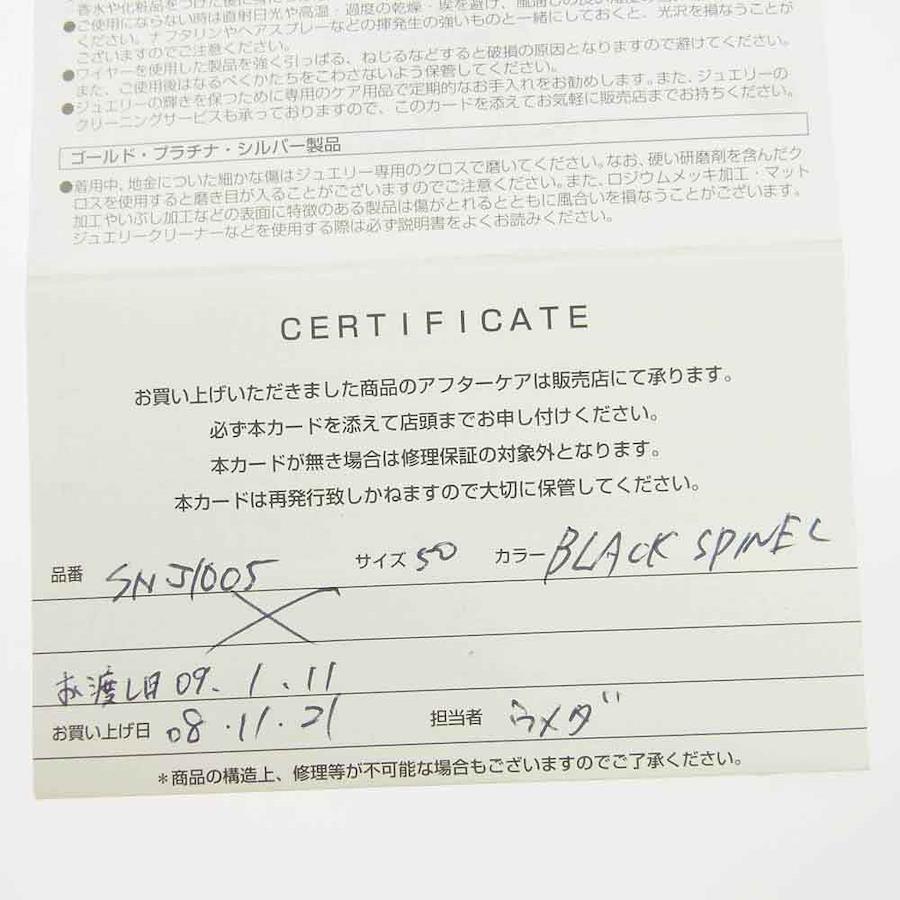 香水や化粧品をつけた後に
●ご使用にならない時は直射日光や高温・過度の乾燥・埃を避け、風通しの良い
ください。ナフタリンやヘアスプレーなどの揮発性の強いものと一緒にしておくと、光沢を損なうことが
ございますのでご注意ください。
●ワイヤーを使用した製品を強く引っぱる、ねじるなどすると破損の原因となりますので避けてください。
また、ご使用後はなるべくかたちをこわさないよう保管してください。
●ジュエリーの輝きを保つために専用のケア用品で定期的なお手入れをお勧めします。また、ジュエリーの
クリーニングサービスも承っておりますので、このカードを添えてお気軽に販売店までお持ちください。
ゴールド・プラチナ・シルバー製品
●着用中、地金についた細かな傷はジュエリー専用のクロスで磨いてください。なお、硬い研磨剤を含んだク
ロスを使用すると磨き目が入ることがございますのでご注意ください。また、ロジウムメッキ加工・マット
加工やいぶし加工などの表面に特徴のある製品は傷がとれるとともに風合いを損なうことがございます。
ジュエリークリーナーなどを使用する際は必ず説明書をよくお読みください。
CERTIFICATE
お買い上げいただきました商品のアフターケアは販売店にて承ります。
必ず本カードを添えて店頭までお申し付けください。
本カードが無き場合は修理保証の対象外となります。
本カードは再発行致しかねますので大切に保管してください。
品番 SNJ1005 サイズ 50 カラー BLACK SPINEL
お渡し日 09.1.11
お買い上げ日 08.11.21 担当者 ウメダ
*商品の構造上、修理等が不可能な場合もございますのでご了承ください。